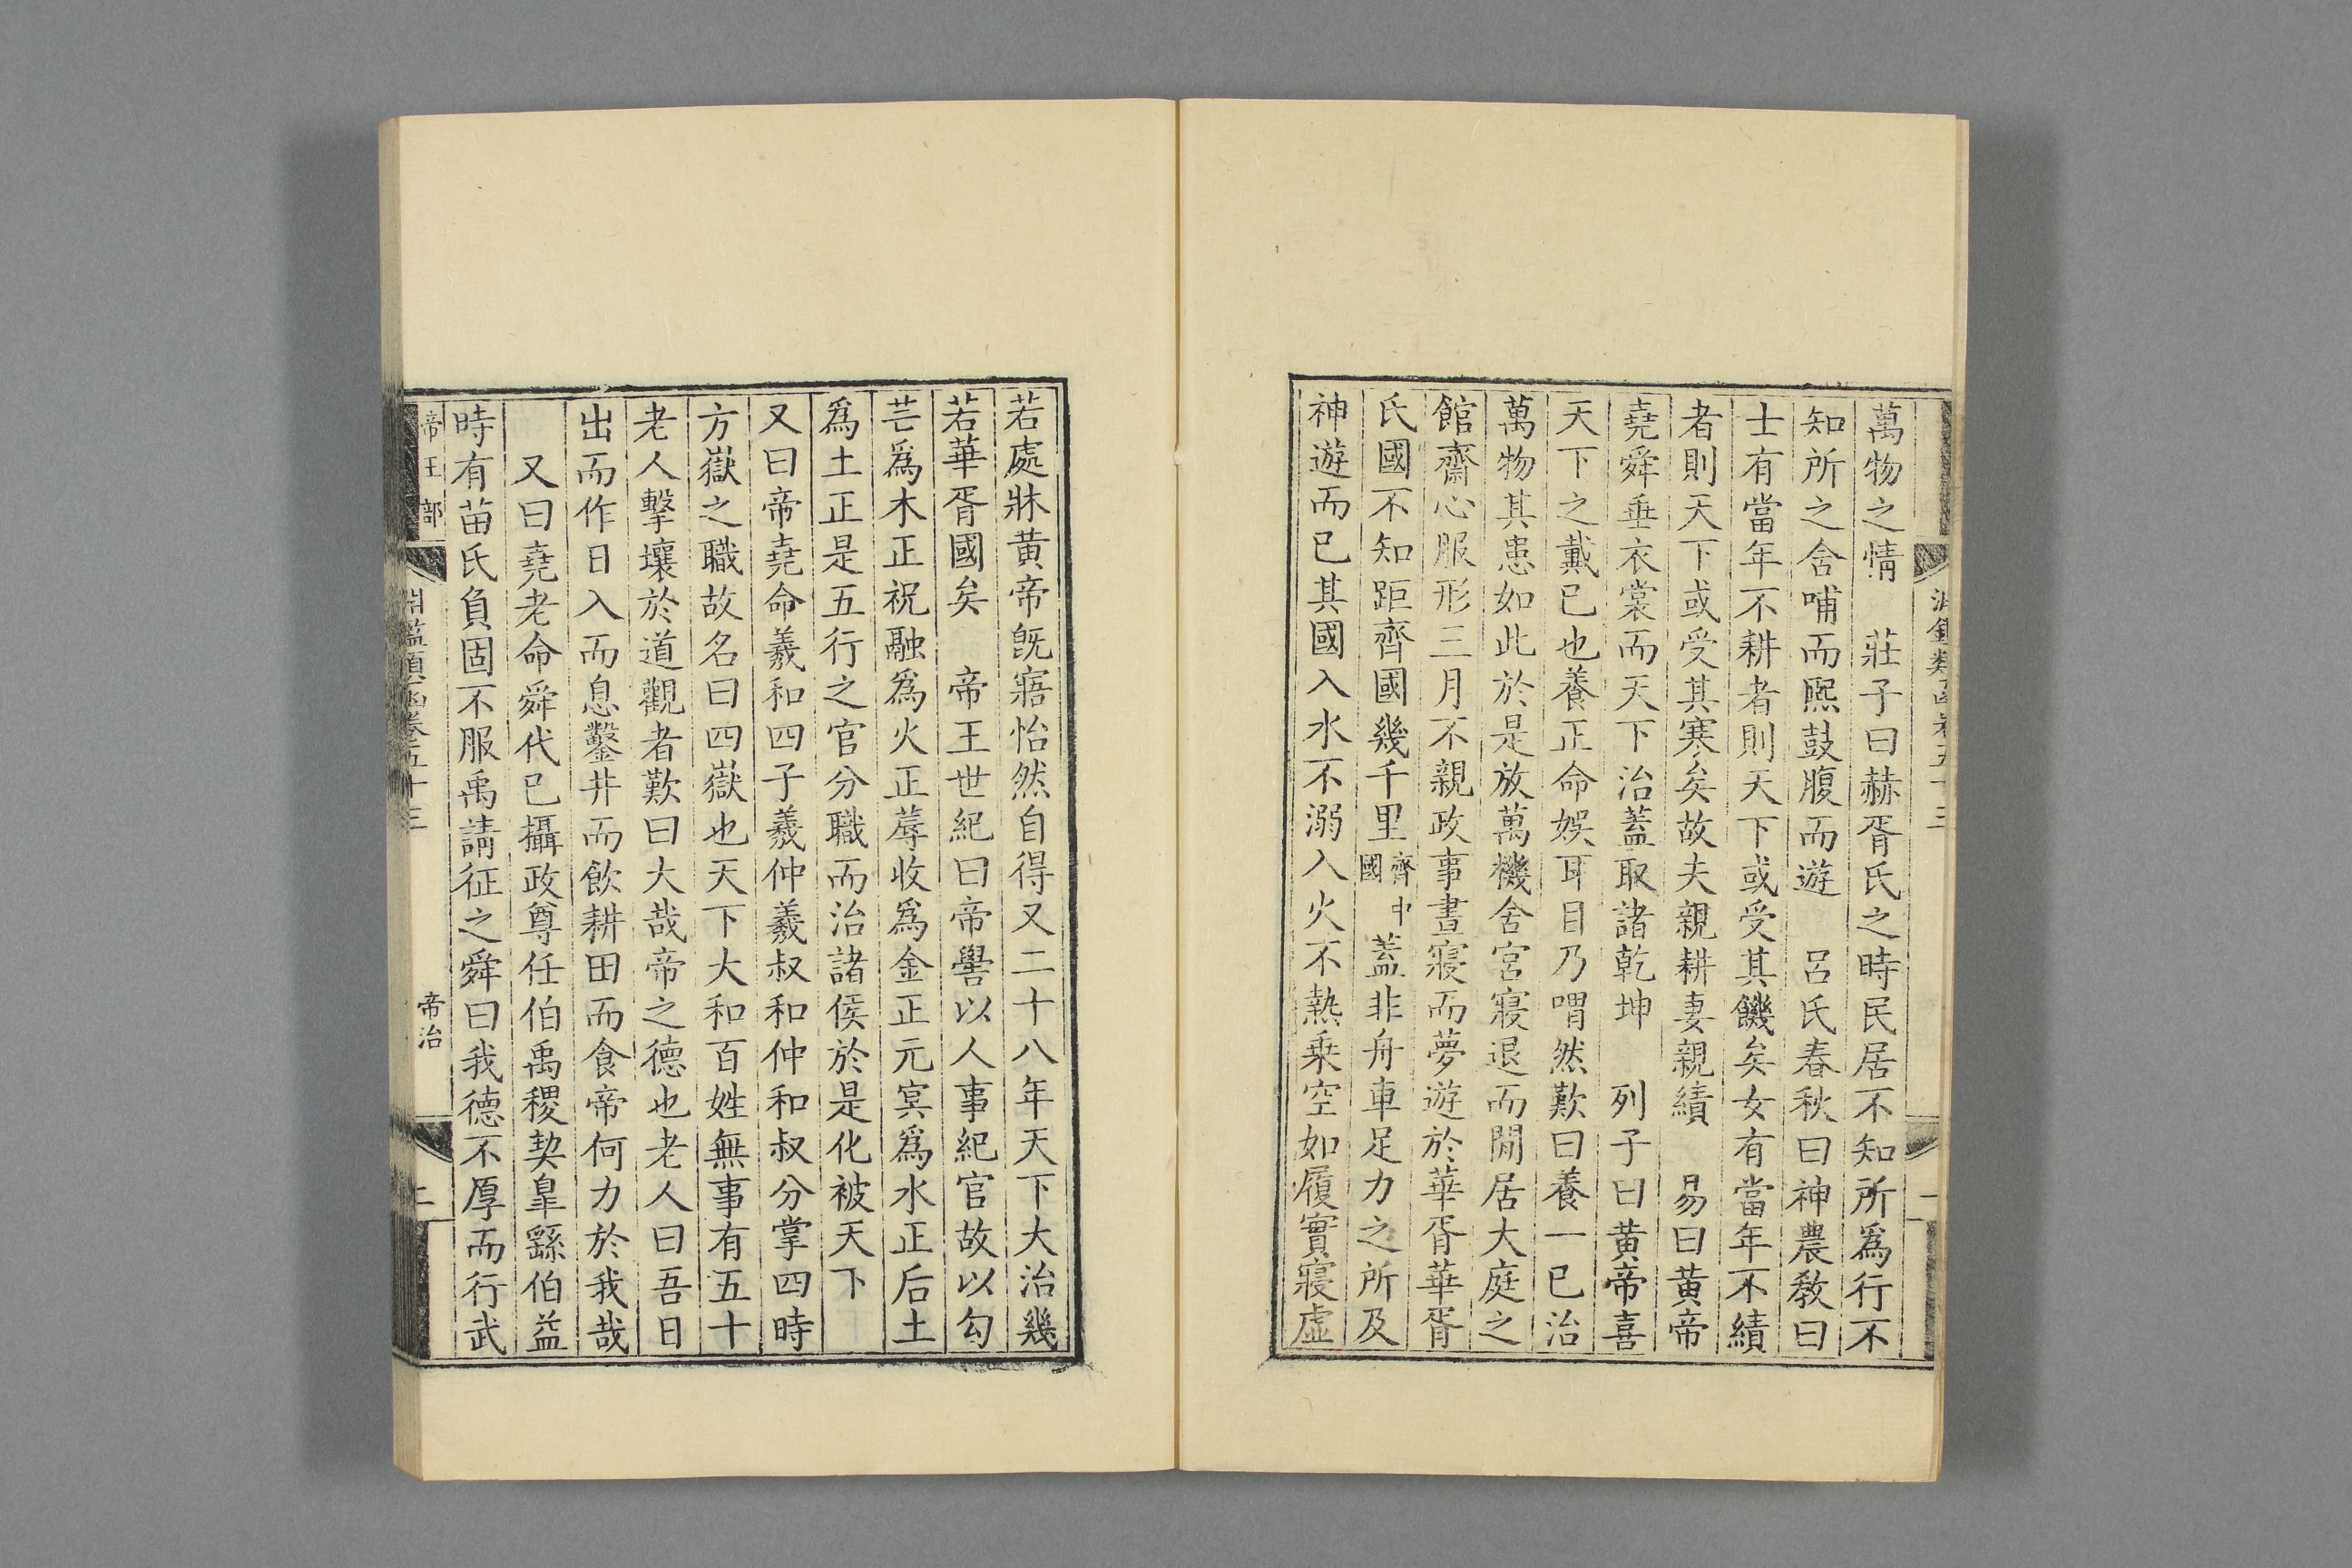 萬物之情　莊子曰赫胥氏之時民居不知所爲行不
知所之含哺而熙鼓腹而遊　呂氏春秋曰神農教曰
士有當年不耕者則天下或受其饑矣女有當年不績
者則天下或受其寒矣故夫親耕妻親績　易曰黄帝
堯舜垂衣裳而天下治蓋取諸乾坤　列子曰黄帝喜
天下之戴已也養正命娛耳目乃喟然歎曰養一已治
萬物其患如此於是放萬機舍宮寢退而閒居大庭之
館齋心服形三月不親政事晝寢而夢遊於華胥華胥
氏國不知距齊國幾千里齊中國蓋非舟車足力之所及
神遊而已其國入水不溺入火不熱乗空如履實寢虛
若處牀黄帝旣寤怡然自得又二十八年天下大治幾
若華胥國矣　帝王世紀曰帝嚳以人事紀官故以勾
芒爲木正祝融爲火正蓐收爲金正元冥爲水正后土
爲土正是五行之官分職而治諸侯於是化被天下
又曰帝堯命羲和四子羲仲羲叔和仲和叔分掌四時
方嶽之職故名曰四嶽也天下大和百姓無事有五十
老人擊壤於道觀者歎曰大哉帝之德也老人曰吾日
出而作日入而息鑿井而飲耕田而食帝何力於我哉
又曰堯老命舜代已攝政尊任伯禹稷契皐繇伯益
時有苗氏負固不服禹請征之舜曰我德不厚而行武
帝王部
淵鑑類函卷五十三
帝治
二